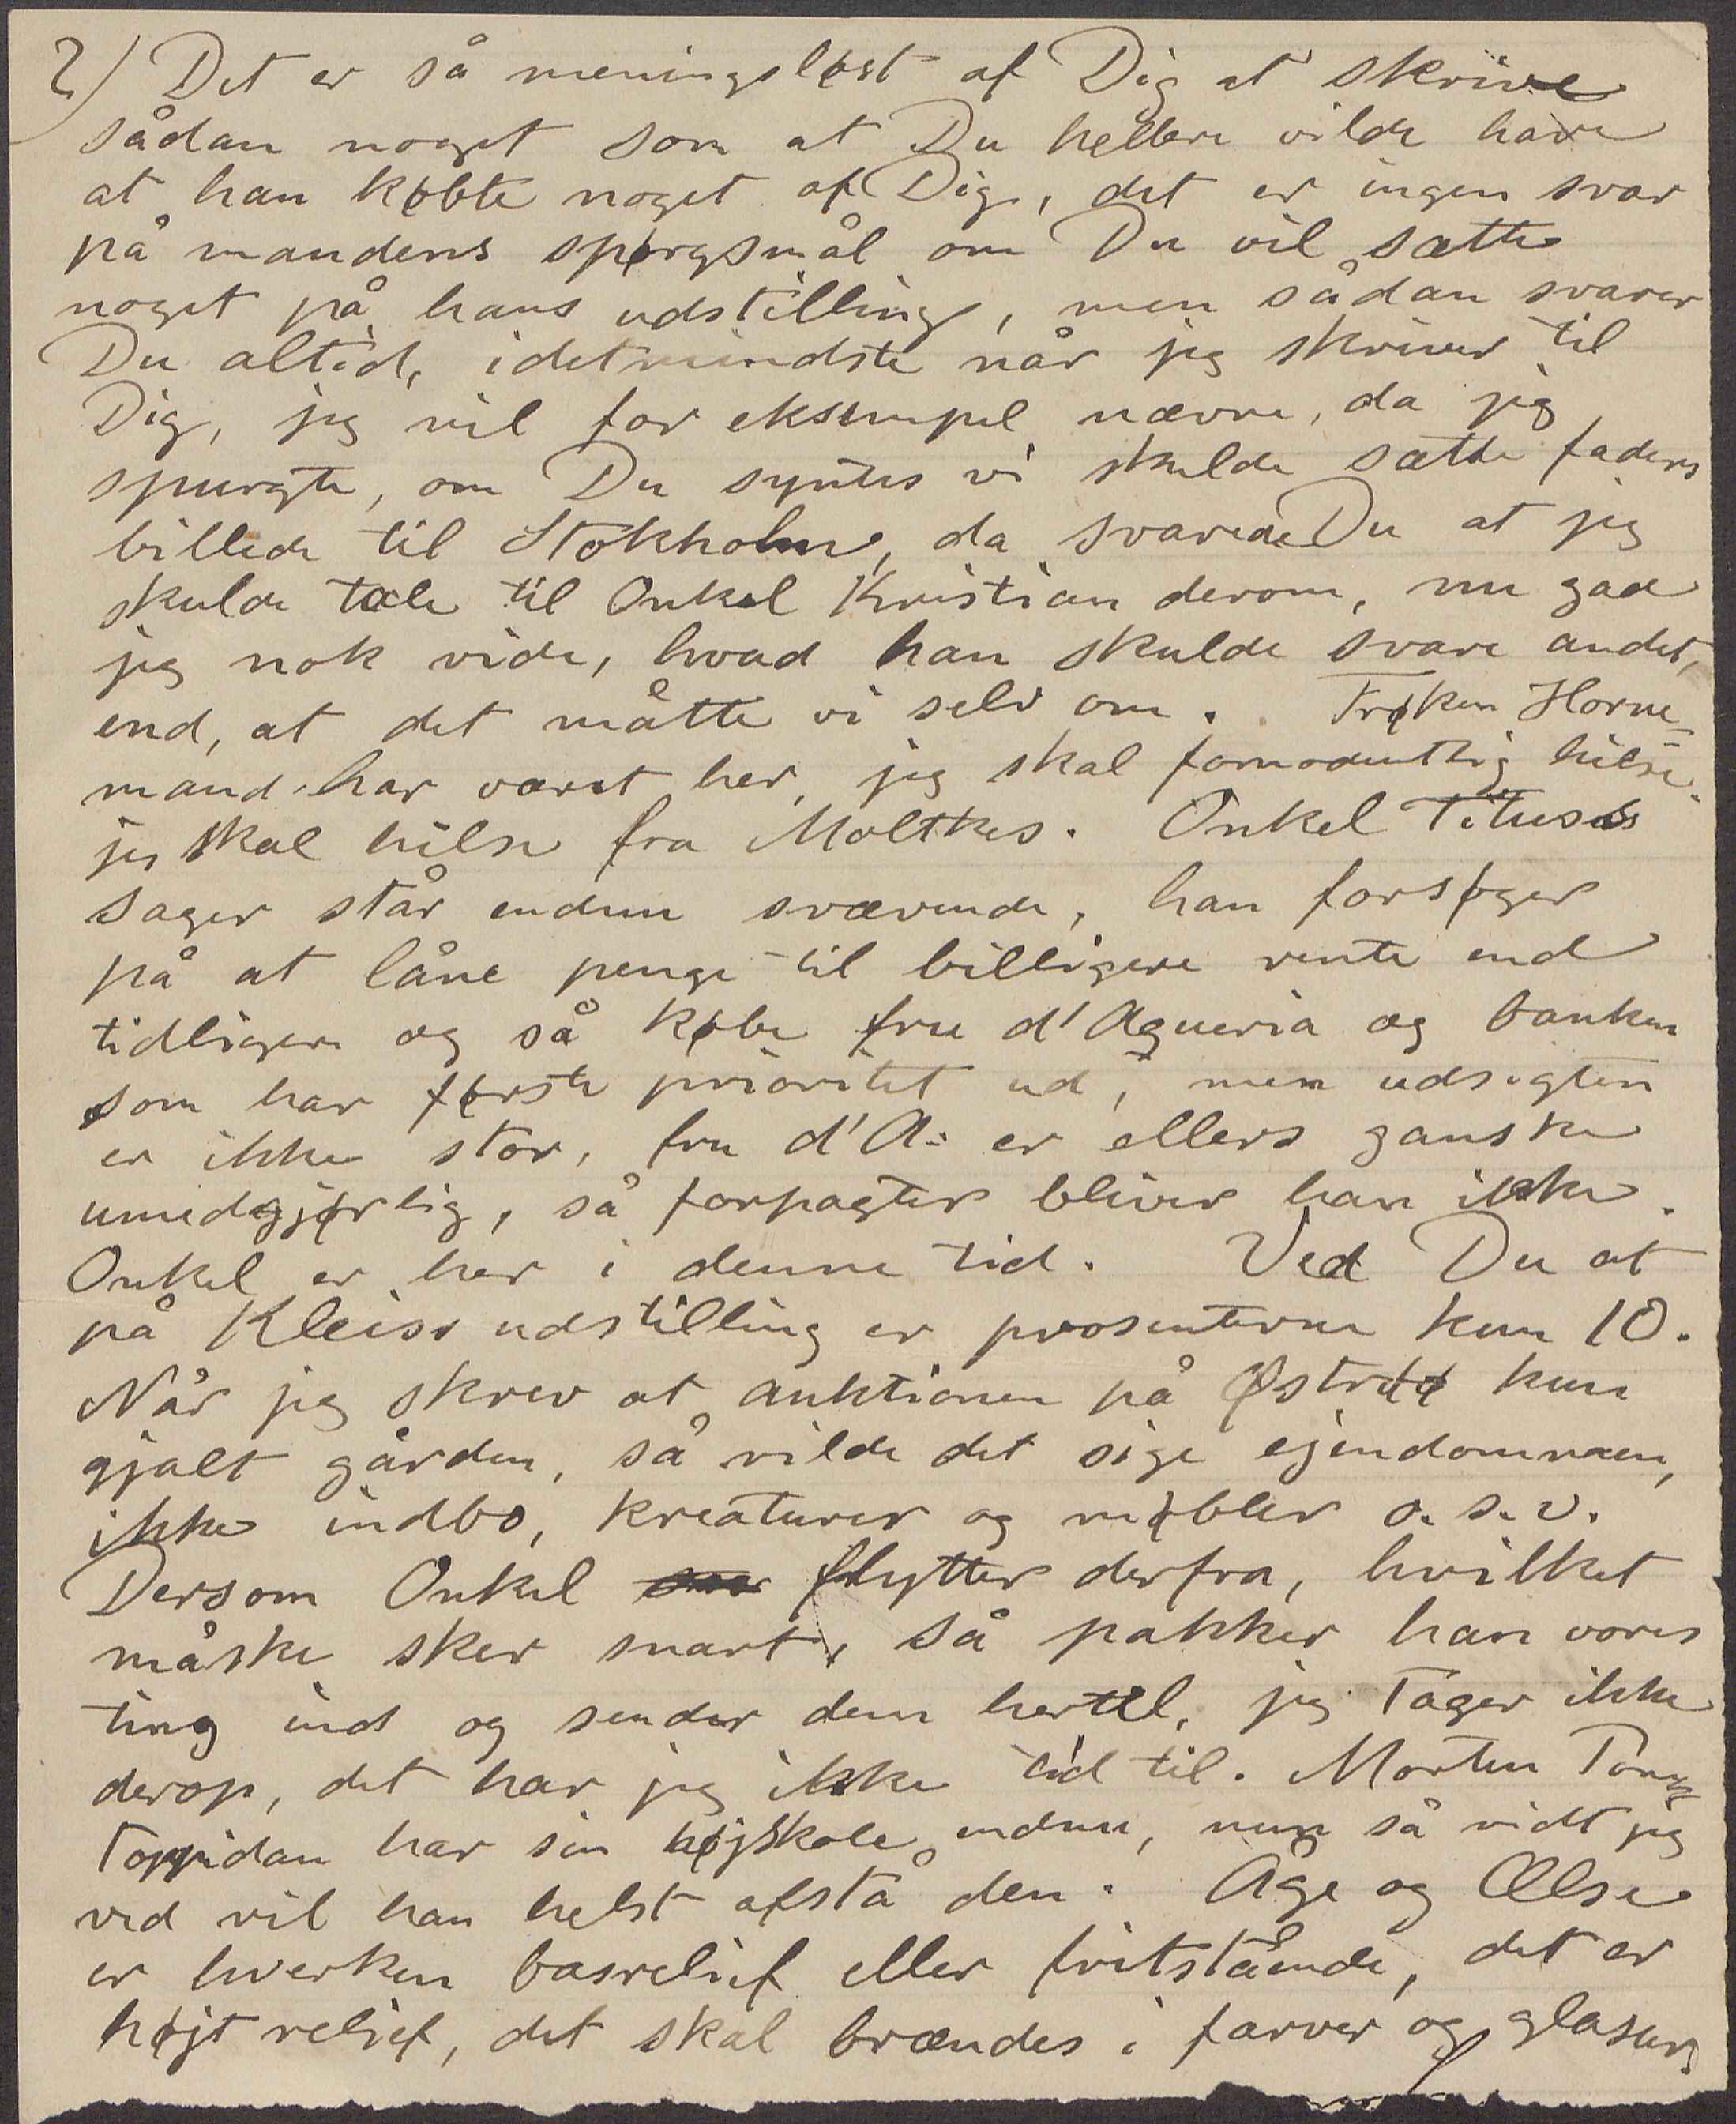 2) Det er så meningsløst af Dig at skrive
sådan noget som at Du hellere vilde have
at han købte noget af Dig, det er ingen svar
på mandens spørgsmål om Du vil sætte
noget på hans udstilling, men sådan svarer
Du altid, idetmindste når jeg skriver til
Dig, jeg vil for eksempel nævne, da jeg
spurgte, om Du syntes vi skulde sætte faders
billede til Stokholm, da svarede Du at jeg
skulde tale til Onkel Kristian derom, nu gad
jeg nok vide, hvad han skulde svare andet,
end, at det måtte vi selv om. Frøken Horne-
mand har været her, jeg skal fomodentlig hilse.
jeg skal hilse fra Moltkes. Onkel Tituses
sager står endnu svævende, han forsøger
på at låne penge til billigere rente end
tidligere og så købe fru d'Agueria og banken
som har første prioritet ud, men udsigten
er ikke stor, fru d'A. er ellers ganske
umedgjørlig, så forpagter bliver han ikke.
Onkel er her i denne tid. Ved Du at
på Kleiss udstilling er prosenterne kun 10.
Når jeg skrev at auktionen på Østrøø kun
gjalt gården, så vilde det sige ejendommen,
ikke indbo, kreaturer og møbler o.s.v.
Dersom Onkel flytter derfra, hvilket
måske sker snart, så pakker han vores
ting ind og sender dem hertil, jeg tager ikke
derop, det har jeg ikke tid til. Morten
Toppidan har sin højskole endnu, men så vidt jeg
ved vil han helst afstå den. Åge og Else
er hverken basrelief eller fritstående, det er
højt relief, det skal brændes i farver og glasur